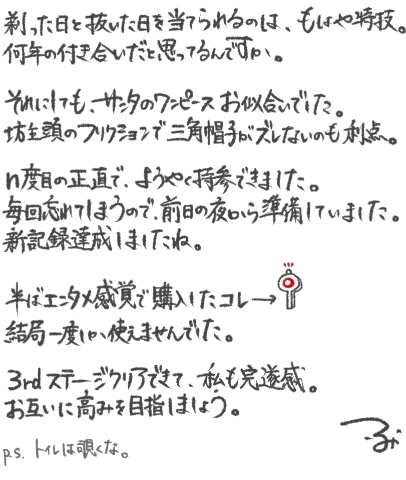 剃った日と抜いた日を当てられるのは、もはや特技。
何年の付き合いだと思ってるんですか。
それにしても、サンタのワンピースお似合いでした。
坊主頭のフリクションで三角帽子がズレないのも利点。
n度目の正直で、ようやく持参できました。
毎回忘れてしまうので、前日の夜から準備していました。
新記録達成しましたね。
半ばエンタメ感覚で購入したコレ→
結局一度しか使えませんでした。
3rdステージクリアできて、私も完遂感。
お互いに高みを目指しましょう。
p.s. トイレは覗くな。